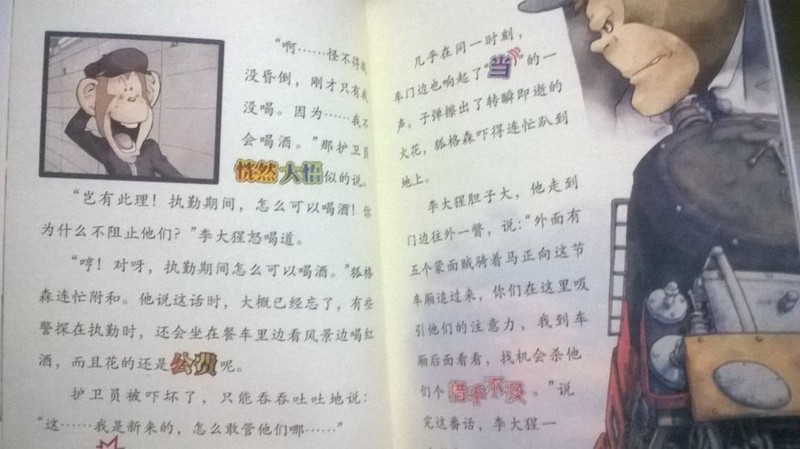 “啊……怪不得我
没昏倒，刚才只有我
没喝。因为……我不
会喝酒。”那护卫员
恍然大悟似的说。
“岂有此理！执勤期间，怎么可以喝酒！你
为什么不阻止他们？”李大猩怒喝道。
“哼！对呀，执勤期间怎么可以喝酒。”狐格
森连忙附和。他说这话时，大概已经忘了，有些
警探在执勤时，还会坐在餐车里边看风景边喝红
酒，而且花的还是公费呢。
护卫员被吓坏了，只能吞吞吐吐地说：
“这……我是新来的，怎么敢管他们哪……”
几乎在同一时刻，
车门边也响起了“当”的一
声。子弹擦出了转瞬即逝的
火花，狐格森吓得连忙趴到
地上。
李大猩胆子大，他走到
门边往外一瞥，说：“外面有
五个蒙面贼骑着马正向这节
车厢追过来，你们在这里吸
引他们的注意力，我到车
厢后面看看，找机会杀他
们个措手不及。”说
完这番话，李大猩一